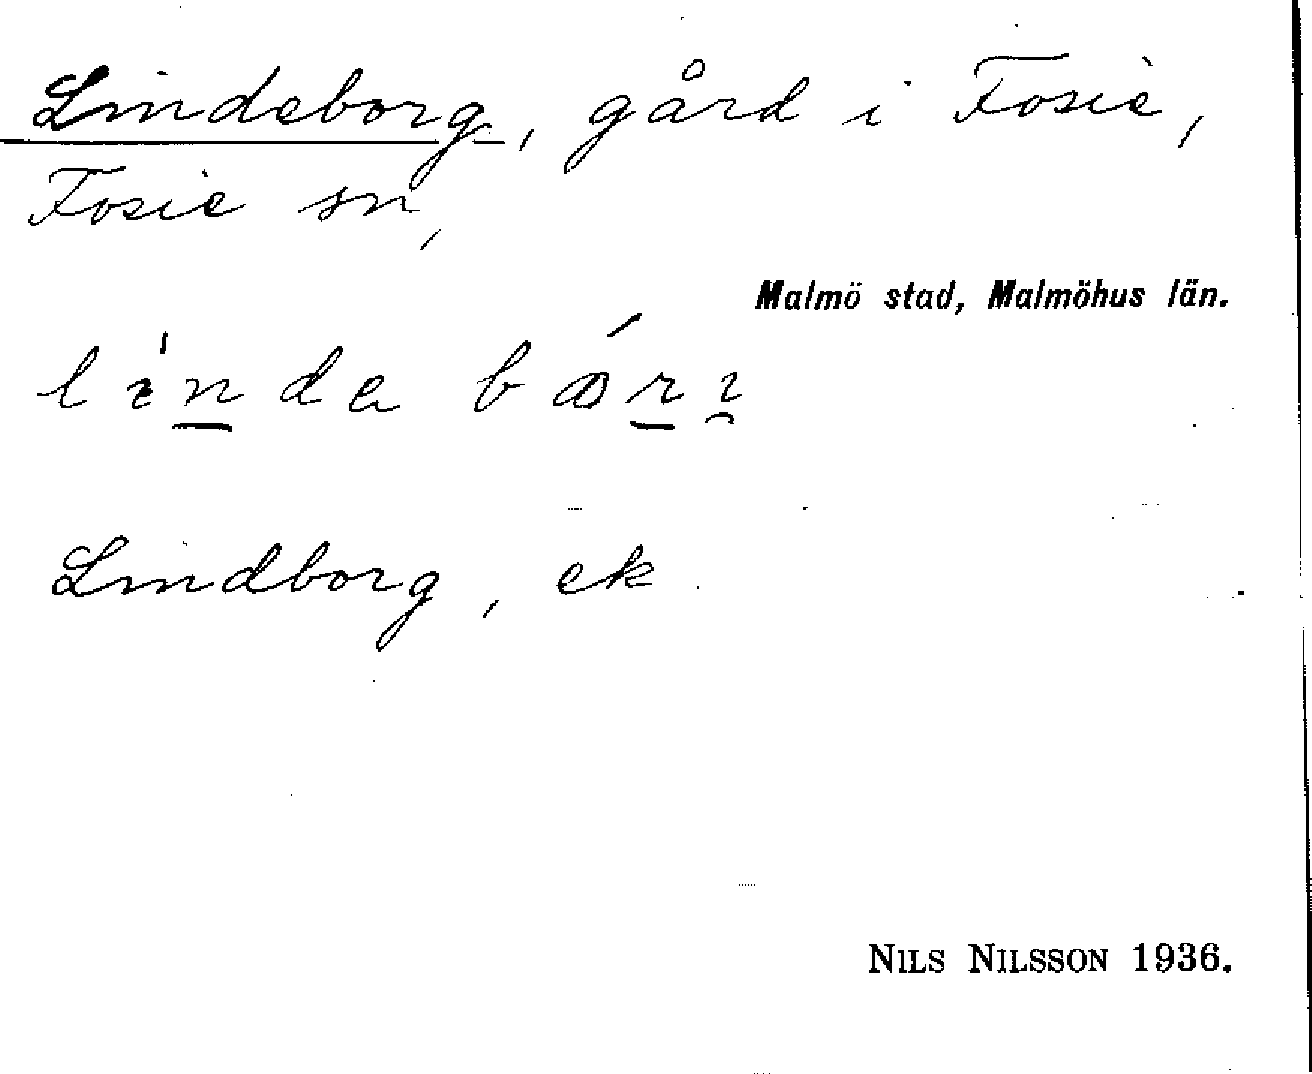 Lindeborg, gård i Fosie,
Fosie sn,
Malmö stad, Malmöhus län.
Lindborg, ek
NILS NILSSON 1936.